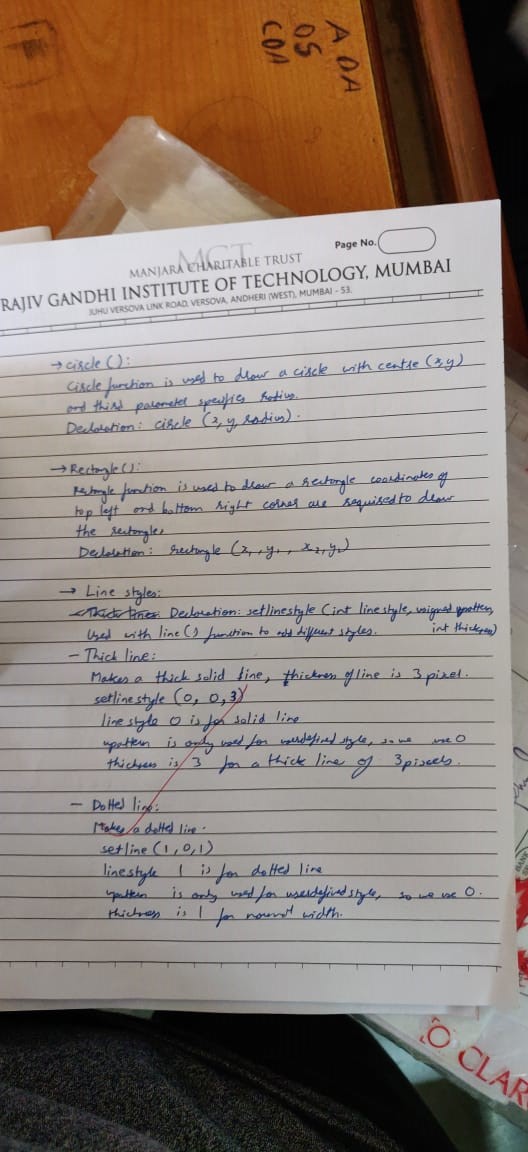 ADA
OS
COA
MCT
MANJARA CHARITABLE TRUST
Page No.
RAJIV GANDHI INSTITUTE OF TECHNOLOGY, MUMBAI
JUHU VERSOVA LINK ROAD, VERSOVA, ANDHERI (WEST), MUMBAI - 53.
→ circle ():
Circle function is used to draw a circle with centre (x,y)
and third parameter specifies radius.
Declaration: circle (x, y, radius).
→ Rectangle ():
Rectangle function is used to draw a rectangle coordinates of
top left and bottom right corner are required to draw
the rectangle.
Declaration: rectangle (x1, y1, x2, y2)
→ Line styles:
Thick lines: Declaration: setlinestyle (int linestyle, unsigned upattern,
int thickness)
Used with line() function to add different styles.
- Thick line:
Makes a thick solid line, thickness of line is 3 pixel.
setlinestyle (0, 0, 3)
line style 0 is for solid line
upattern is only used for userdefined style, so we use 0
thickness is 3 for a thick line of 3 pixels.
- Dotted line:
Makes a dotted line.
setline (1, 0, 1)
linestyle 1 is for dotted line
upattern is only used for userdefined style, so we use 0.
thickness is 1 for normal width.
CLAR